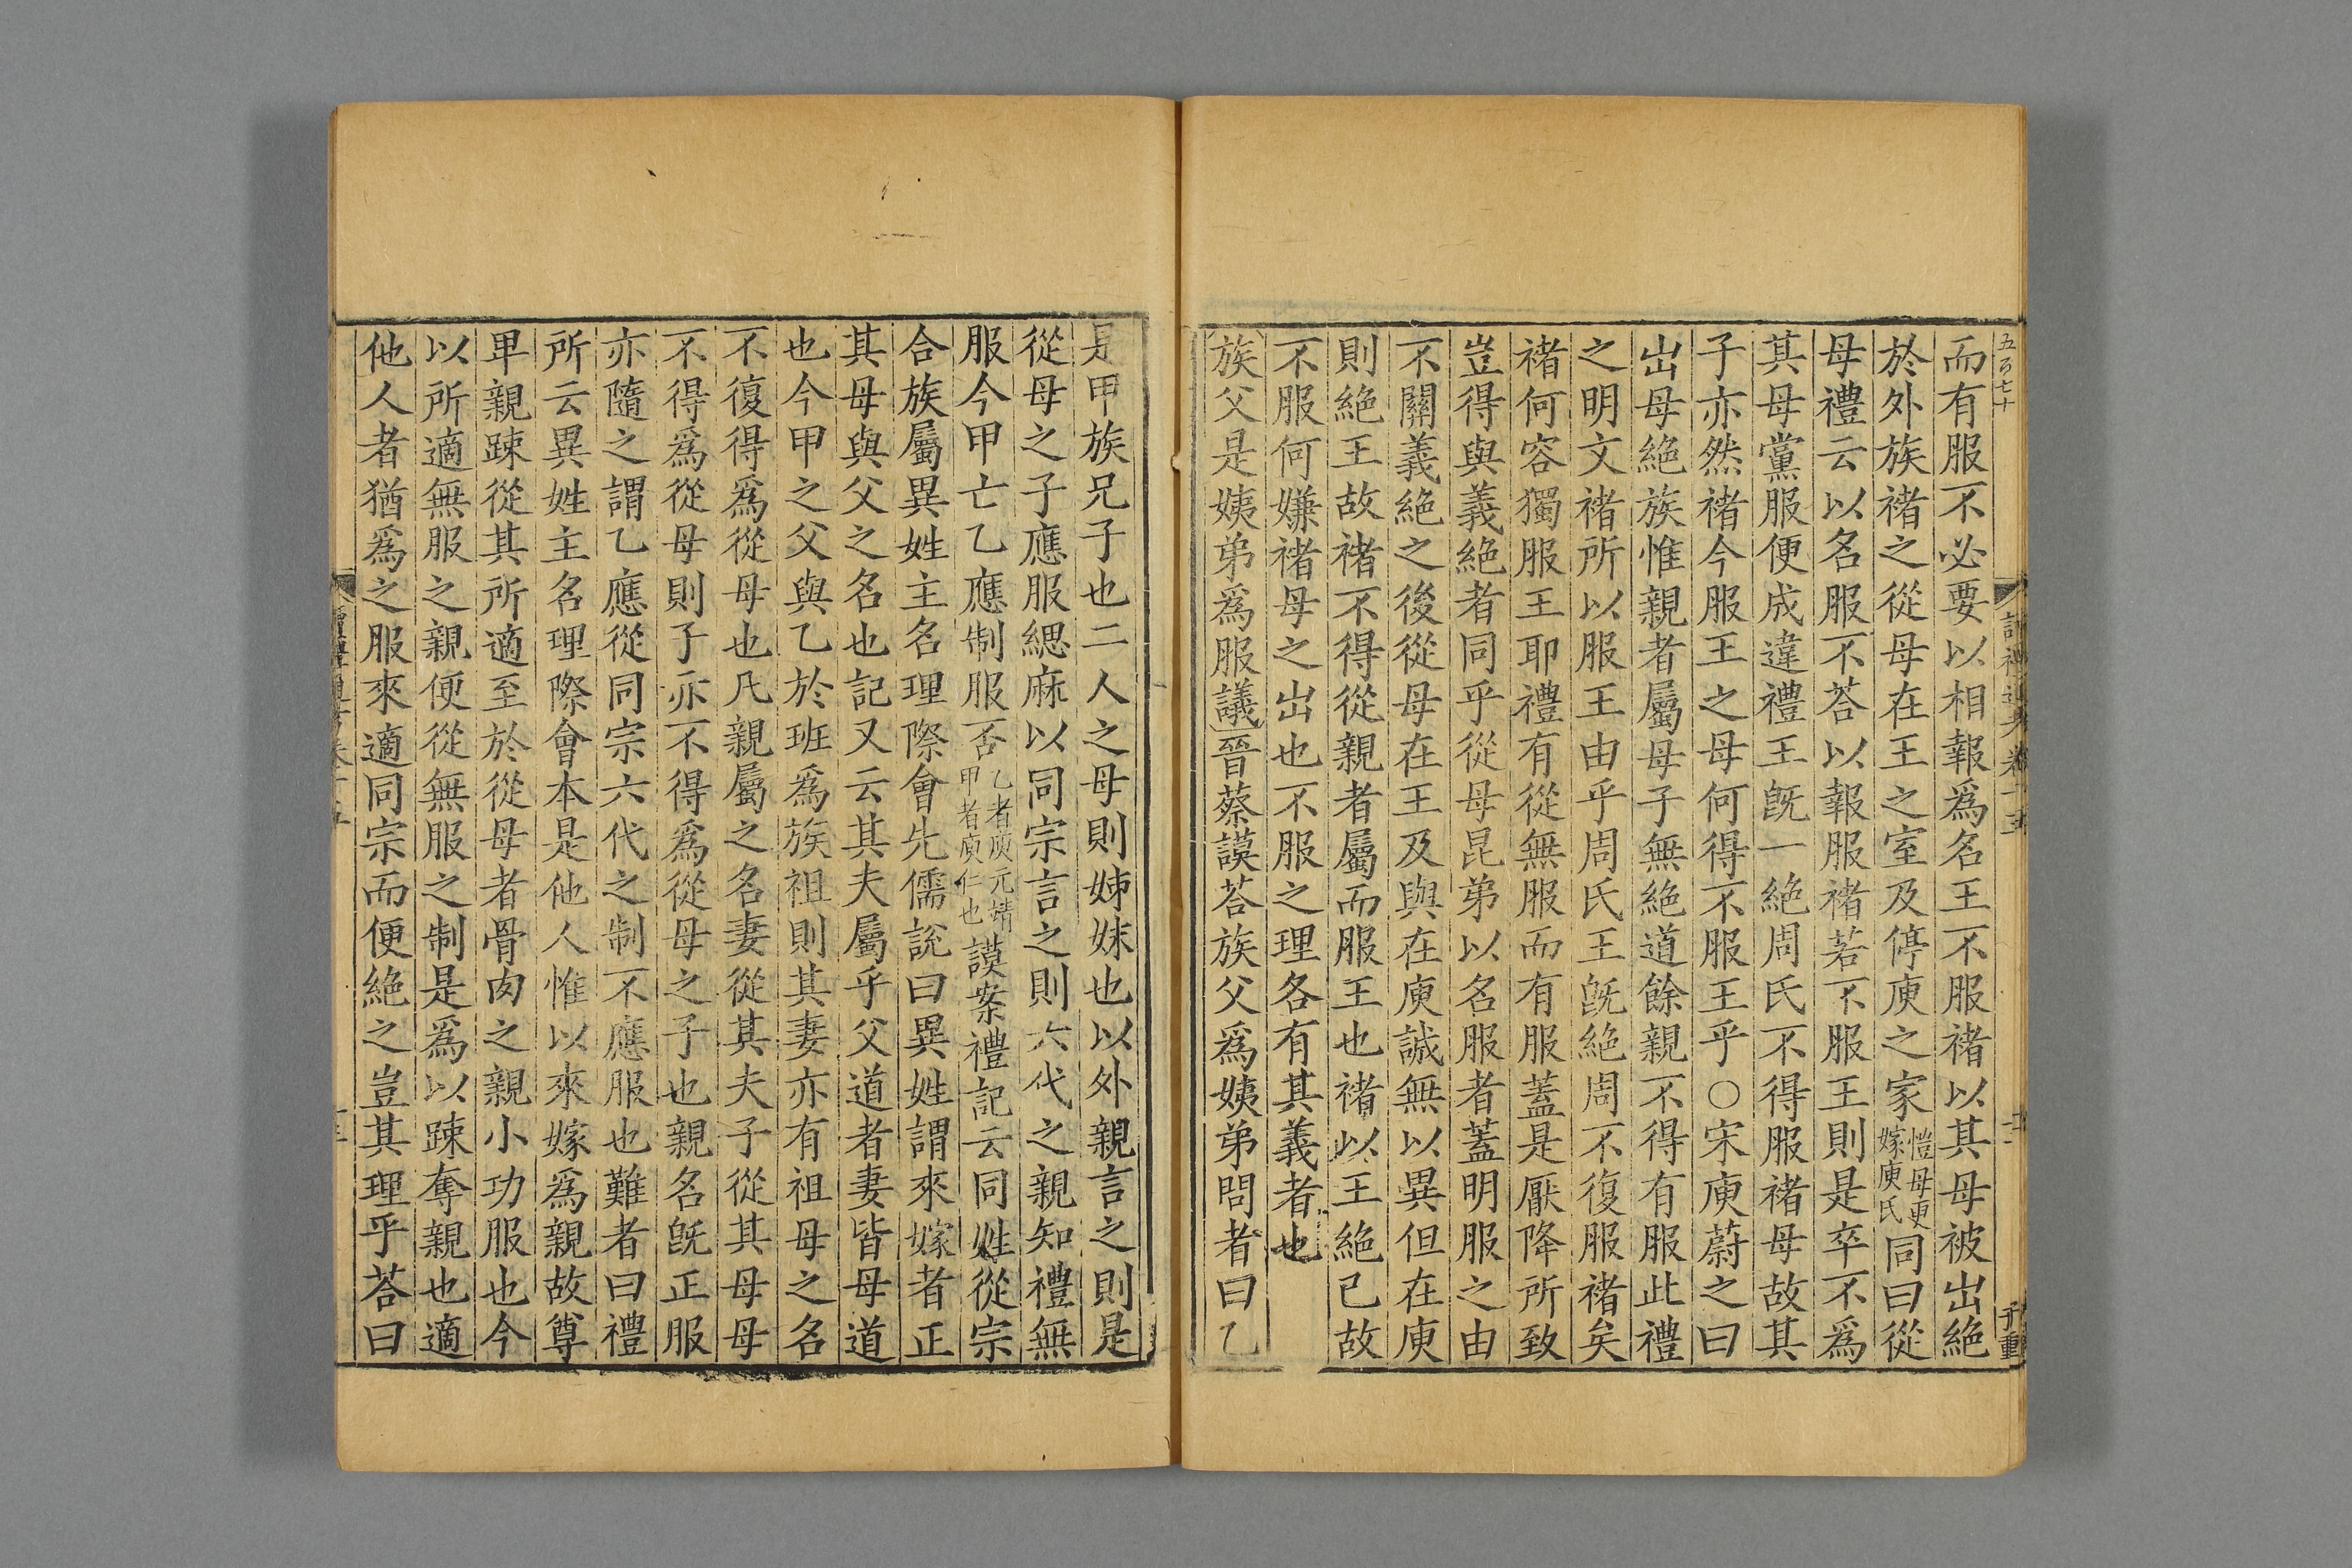 五百七十
而有服不必要以相報爲名王不服褚以其母被出絕
於外族褚之從母在王之室及停庾之家愷母更嫁庾氏同曰從
母禮云以名服不荅以報服褚若不服王則是卒不爲
其母黨服便成違禮王旣一絕周氏不得服褚母故其
子亦然褚今服王之母何得不服王乎○宋庾蔚之曰
出母絕族惟親者屬母子無絕道餘親不得有服此禮
之明文褚所以服王由乎周氏王旣絕周不復服褚矣
褚何容獨服王耶禮有從無服而有服蓋是厭降所致
豈得與義絕者同乎從母昆弟以名服者蓋明服之由
不關義絕之後從母在王及與在庾誠無以異但在庾
則絕王故褚不得從親者屬而服王也褚以王絕已故
不服何嫌褚母之出也不服之理各有其義者也
族父是姨弟爲服議晉蔡謨荅族父爲姨弟問者曰乙
是甲族兄子也二人之母則姊妹也以外親言之則是
從母之子應服緦麻以同宗言之則六代之親知禮無
服今甲亡乙應制服否乙者庾元靖甲者庾仁也謨案禮記云同姓從宗
合族屬異姓主名理際會先儒說曰異姓謂來嫁者正
其母與父之名也記又云其夫屬乎父道者妻皆母道
也今甲之父與乙於班爲族祖則其妻亦有祖母之名
不復得爲從母也凡親屬之名妻從其夫子從其母母
不得爲從母則子亦不得爲從母之子也親名旣正服
亦隨之謂乙應從同宗六代之制不應服也難者曰禮
所云異姓主名理際會本是他人惟以來嫁爲親故尊
卑親踈從其所適至於從母者骨肉之親小功服也今
以所適無服之親便從無服之制是爲以踈奪親也適
他人者猶爲之服來適同宗而便絕之豈其理乎荅曰